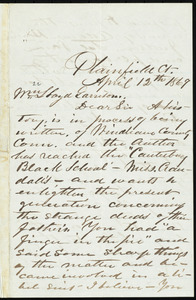 Plainfield Ct.
April 12th 1869
Wm Lloyd Garrison,
Dear Sir A his-
tory, is in process of being
written, of Windham County
Conn. and the Author
has reached the "Canterbury
Black School - Miss Cran-
dall's - and wants to
enlighten the present
generation concerning
the strange deeds of the
fathers. You had "a
finger in the pie" and
said some sharp things
on the matter and be-
came involved in a li-
bel suit - I believe - You